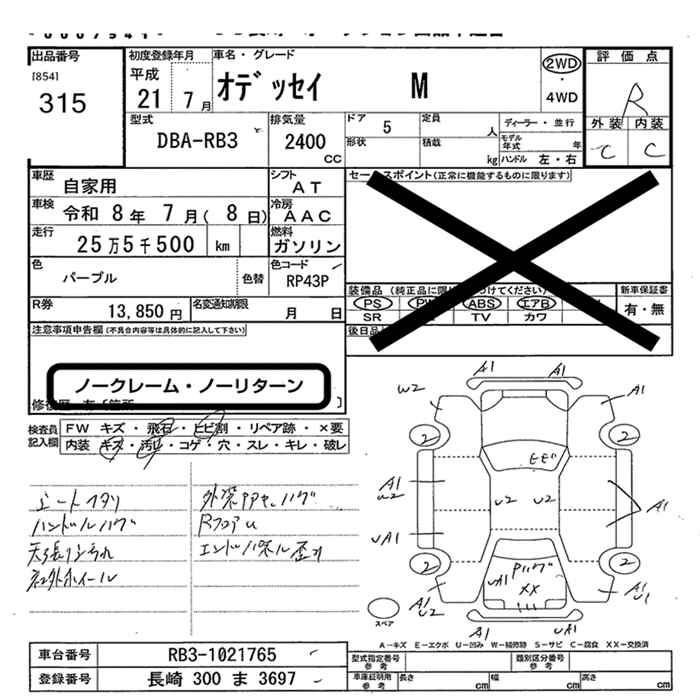 出品番号
[854]
315
初度登録年月
平成
21 7 月
車名・グレード
オデッセイ M
2WD
・
4WD
評価点
R
外装 内装
C C
型式
DBA-RB3
排気量
2400
CC
ドア 5
定員 人
形状
積載 kg
ディーラー・並行
モデル年式 年
ハンドル 左・右
車歴 自家用
シフト AT
車検 令和 8 年 7 月( 8 日)
冷房 AAC
走行 25万5千500 km
燃料 ガソリン
色 パープル 色替
色コード RP43P
R券 13,850 円
名変通知期限 月 日
セールスポイント(正常に機能するものに限ります)
新車保証書
有・無
PS ABS エアB
SR TV カワ
注意事項申告欄(不具合内容等は具体的に記入して下さい)
ノークレーム・ノーリターン
検査員記入欄
FW キズ・飛石・ヒビ割・リペア跡・×要
内装 キズ・汚レ・コゲ・穴・スレ・キレ・破レ
シートスタリ
ハンドルハゲ
天張リ汚れ
社外ホイール
RフロアU
エンドパネル歪み
A1 A1
W2 A1
2 2
A1
U2
U2 U2
A1
UA1
Pハゲ
UA1 XX
2 2
A1
U2
A1
U1
A1 UA1
スペア
A-キズ E-エクボ U-凹み W-補修跡 S-サビ C-腐食 XX-交換済
車台番号 RB3-1021765
型式指定番号
参考
類別区分番号
参考
登録番号 長崎 300 ま 3697
車庫証明用
参考
長さ cm 幅 cm 高さ cm